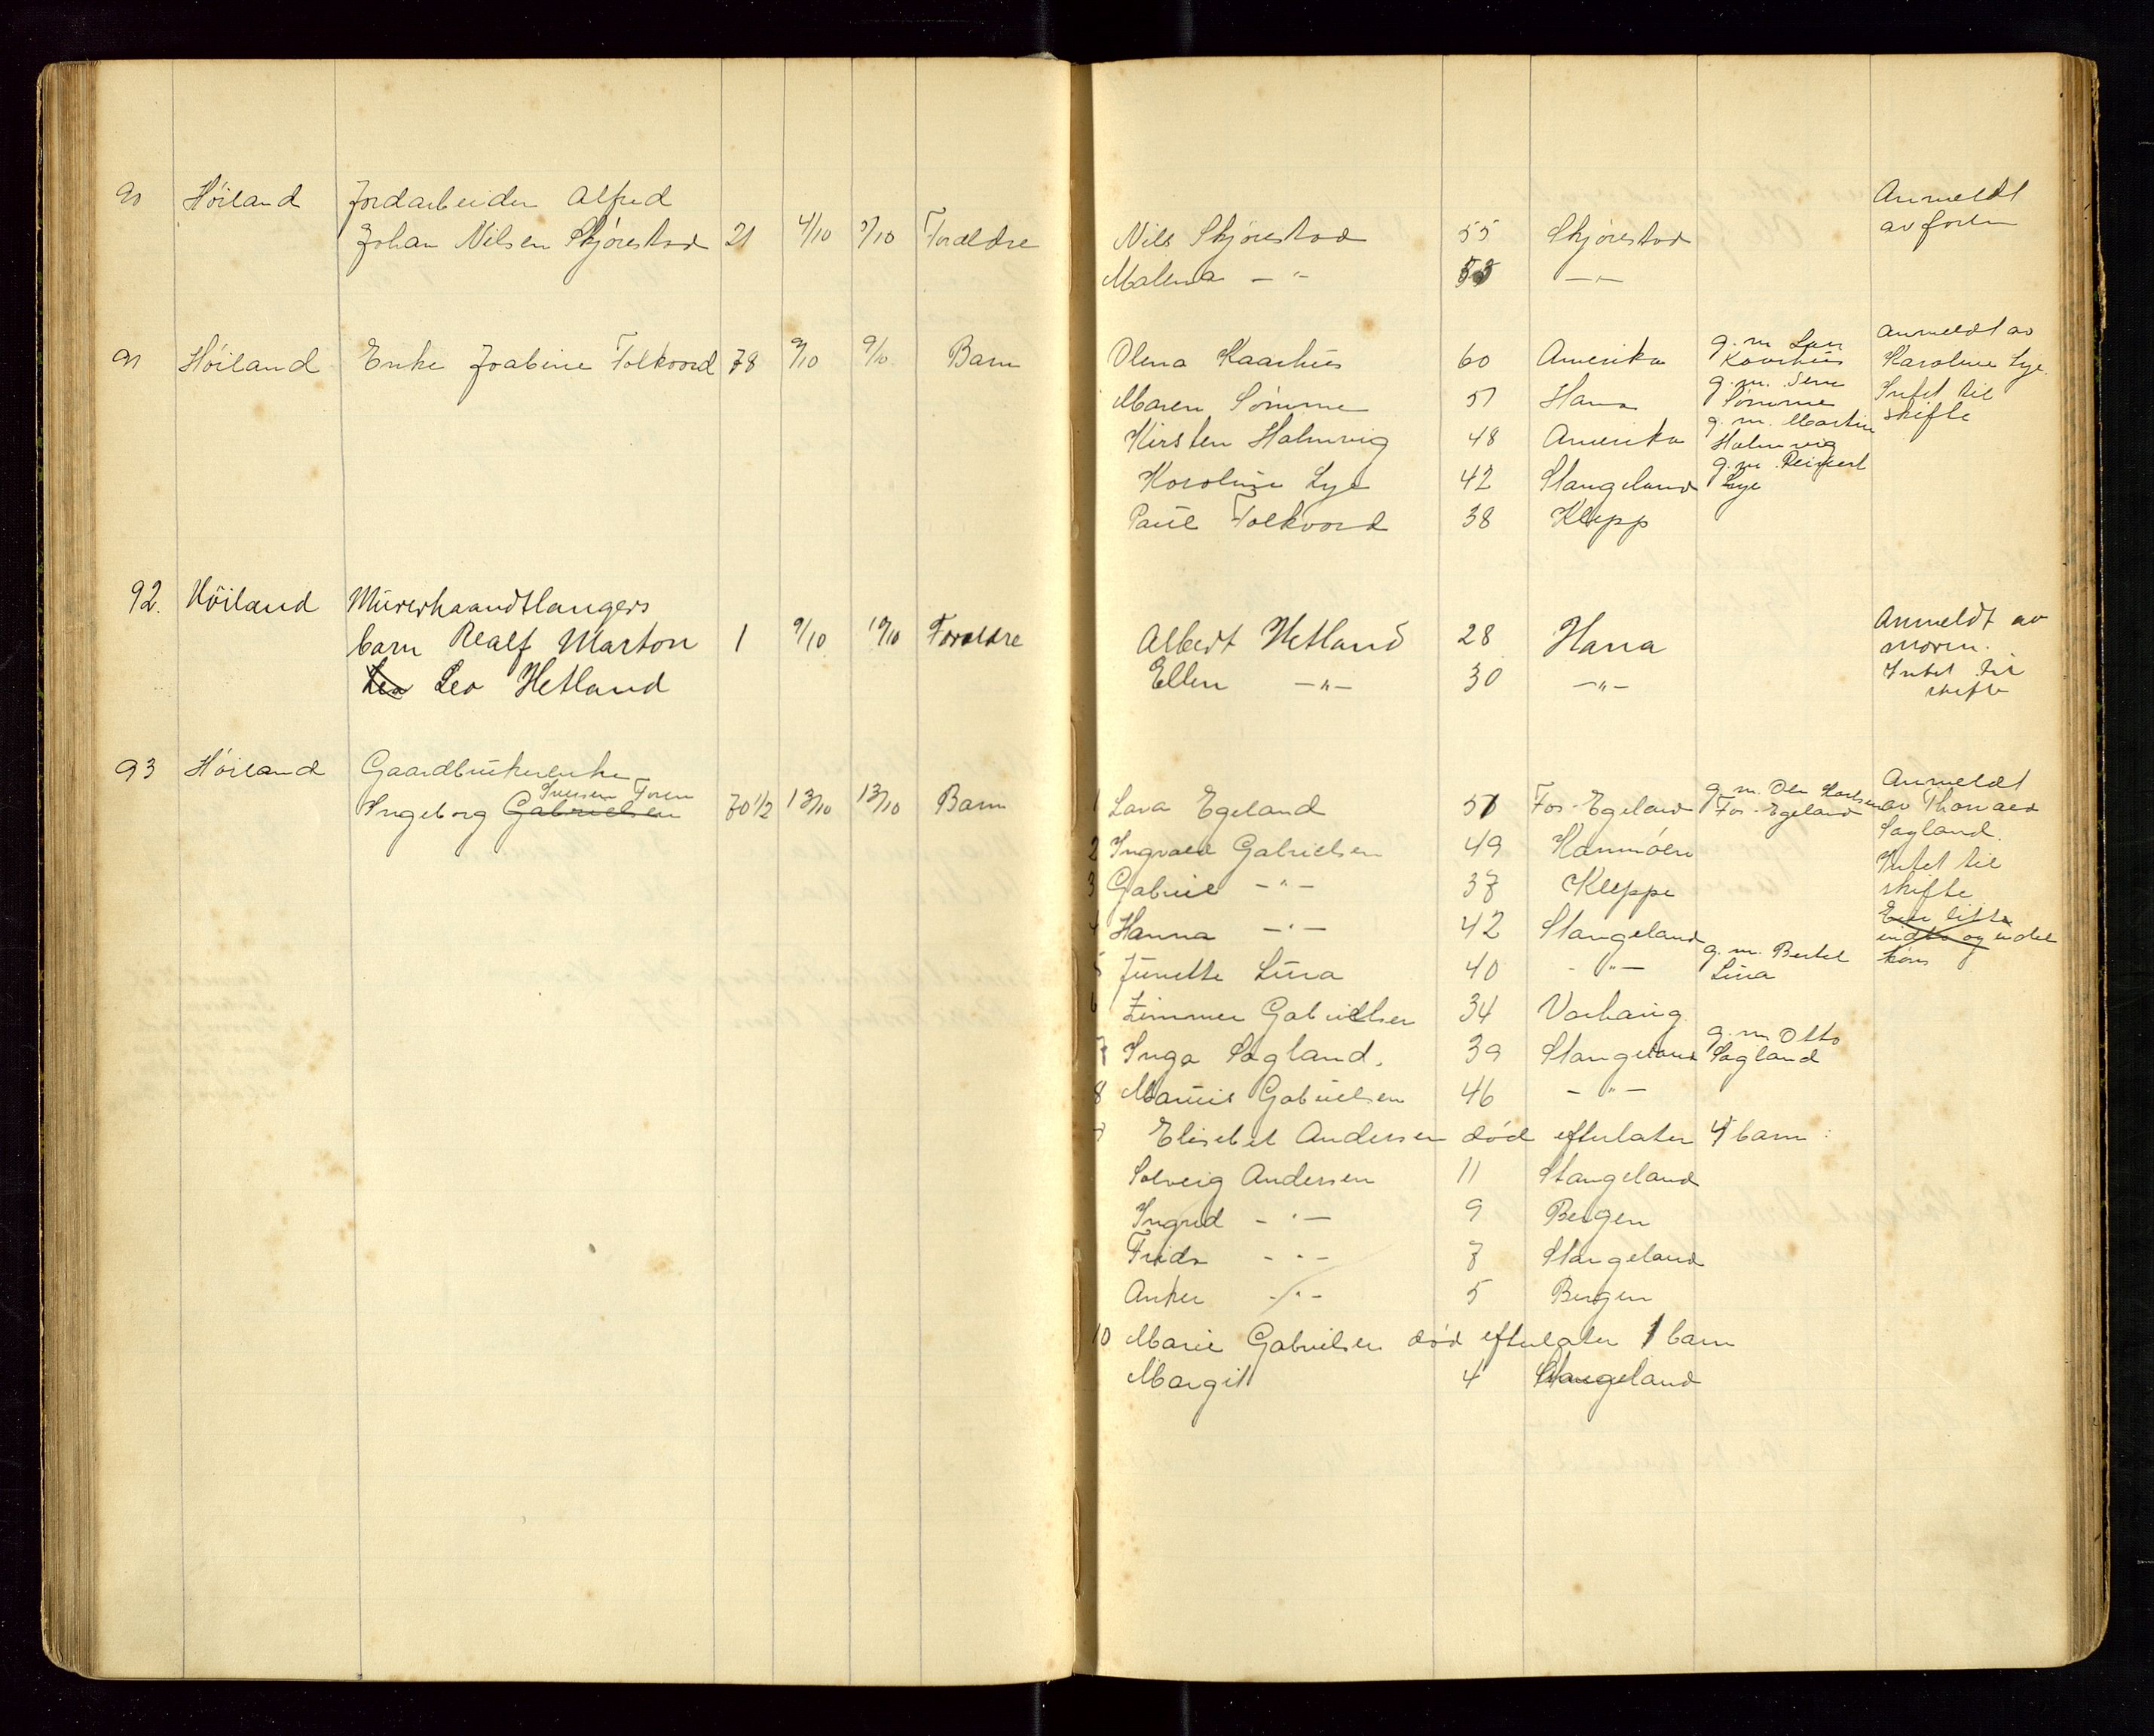 90 Höiland Jordarbeider Alfred
Johan Nilsen Skjörestad 21 4/10 5/10 Forældre Nils Skjörestad 55 Skjörestad Anmeldt av faren
Malena — " 55 — " —
91 Höiland Enke Joabine Folkvord 78 9/10 9/10 Barn Olena Kaarhus 60 Amerika g. m. Lars Kaarhus Anmeldt av Karoline Lye.
Maren Sömme 51 Hana g. m. Jens Sömme Intet til skifte
Kirsten Holmvig 48 Amerika g. m. Martin Holmvig
Karoline Lye 42 Stangeland g. m. Reinert Lye
Paul Folkvord 38 Klepp
92. Höiland Murerhaandtlangers
barn Realf Marton 1 9/10 10/10 Forældre Albert Hetland 28 Hana Anmeldt av moren.
Leo Hetland Ellen — " — 30 — " — Intet til skifte
93 Höiland Gaardbrukerenke
Iversen Foren
Ingeborg Gabrielsen 70 1/2 13/10 13/10 Barn 1 Lava Egeland 51 Fos-Egeland g. m. Ole Fos-Egeland Anmeldt av Thorvald Sagland.
2 Ingvald Gabrielsen 49 Intet til
3 Gabriel — " — 37 Kleppe skifte
4 Hanna — " — 42 Stangeland
5 Junette Lura 40 - " — g. m. Bertel Lura
6 Zimmer Gabrielsen 34 Varhaug
7 Inga Sagland. 39 Stangeland g. m. Otto Sagland
8 Gabrielsen 46 - " —
9 Elisebet Andersen död efterlater 4 barn:
Solveig Andersen 11 Stangeland
Ingrid — " — 9 Bergen
Frida - " - 7 Stangeland
Anker - " - 5 Bergen
10 Marie Gabrielsen död efterlater 1 barn
Margit 4 Stangeland